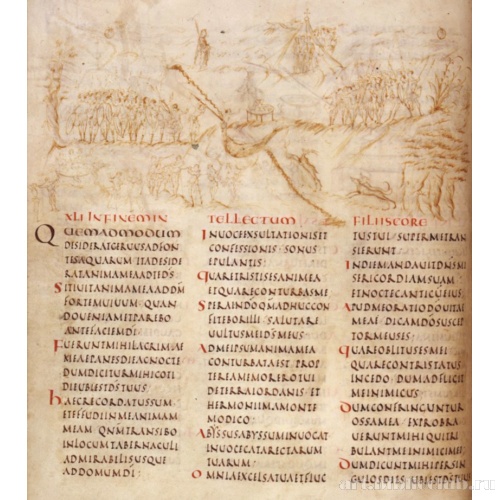 XLI IN FINEM IN TELLECTUM FILIIS CORE
QUEMADMODUM
DISIDIRAT CERUUS AD FON
TES AQUARUM ITA DESIDE
RAT ANIMA MEA AD TE DS
SITIUIT ANIMA MEA AD DM
FORTEM UIUUM QUAN
DO UENIAM ET PAREBO
ANTE FACIEM DI
FUERUNT MIHI LACRIMAE
MEAE PANES DIE AC NOCTE
DUM DICITUR MIHI COTI
DIE UBI EST DS TUUS
HAEC RECORDATUS SUM
ET EFFUDI IN ME ANIMAM
MEAM QNM TRANSIBO
IN LOCUM TABERNACULI
ADMIRABILIS USQUE
AD DOMUM DI
IN UOCE EXSULTATIONIS ET
CONFESSIONIS SONUS
EPULANTIS
QUARE TRISTIS ES ANIMA MEA
ET QUARE CONTURBAS ME
SPERA IN DO QM ADHUC CON
FITEBOR ILLI SALUTARE
UULTUS MEI DS MEUS
AD ME IPSUM ANIMA MEA
CONTURBATA EST PROP
TEREA MEMOR ERO TUI
DE TERRA IORDANIS ET
HERMONIIM A MONTE
MODICO
ABYSSUS ABYSSUM INUOCAT
IN UOCE CATARECTARUM
TUARUM
OMNIA EXCELSA TUA ET FLUC
TUS TUI SUPER ME TRAN
SIERUNT
IN DIE MANDAUIT DNS MI
SERICORDIAM SUAM
ET NOCTE CANTICU EIUS
APUD ME ORATIO DO UITAE
MEAE DICAM DO SUSCEP
TOR MEUS ES
QUARE OBLITUS ES MEI
QUARE CONTRISTATUS
INCEDO DUM ADFLIGIT
ME INIMICUS
DUM CONFRINGUNTUR
OSSA MEA EXPROBRA
UERUNT MIHI QUI TRI
BULANT ME INIMICI MEI
DUM DICUNT MIHI PER SIN
GULOS DIES UBI EST DS TUUS